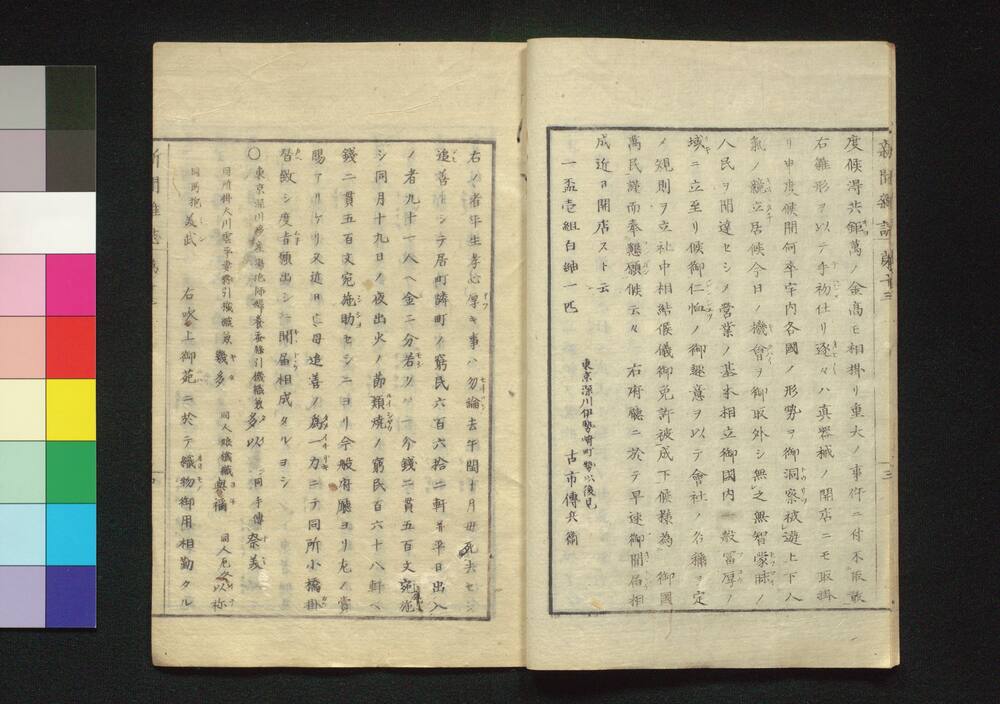 新聞雜誌　第十三
度候得共鉅萬ノ金高モ相掛リ重大ノ事件ニ付不取敢
右雛形ヲ以テ手初仕リ逐々ハ真器械ノ開店ニモ取掛
リ申度候間何卒宇内各國ノ形勢ヲ御洞察被遊上下人
氣ノ競立居候今日ノ機會ヲ御取外シ無之無智蒙昧ノ
人民ヲ開達セシメ營業ノ基本相立御國内一般富厚ノ
域ニ立至リ候御仁恤ノ御趣意ヲ以テ會社ノ名稱ヲ定
メ規則ヲ立社中相結候儀御免許被成下候樣為御國
萬民謹而奉懇願候云々　右府廳ニ於テ早速御聞届相
成近日開店スト云
東京深川伊勢崎町勢以後見　古市傳兵衛
一盃壱組白紬一匹
右ノ者平生孝心厚キ事ハ勿論去午閏十月母死去セシ
追善トシテ居町隣町ノ窮民六百六拾二軒并平日出入
ノ者九十一人ヘ金二分若クハ一分錢二貫五百文宛施
シ同月十九日ノ夜出火ノ節類焼ノ窮民百六十八軒ヘ
錢二貫五百文宛施助セシニヨリ今般府廳ヨリ左ノ賞
賜アリケリ又近日亡母追善ノ為一力ニテ同所小橋掛
替致シ度旨願出シニ聞届相成タルヨシ
〇東京深川 多以 同手傳 奈美
幾多 同人娘
美武
右吹上御苑ニ於テ織物御用相勤タル
新聞雜誌